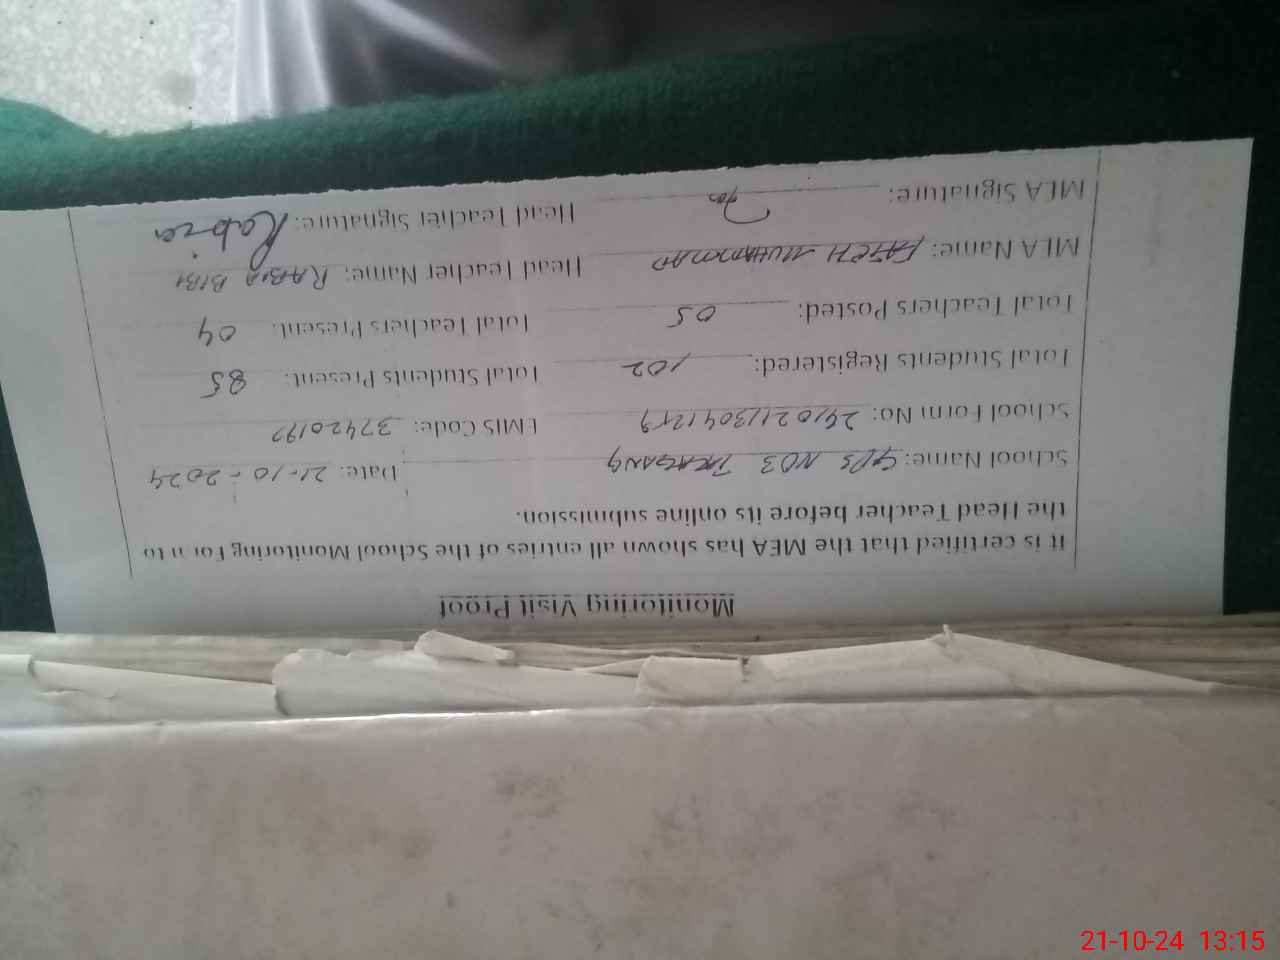 Monitoring Visit Proof
It is certified that the MEA has shown all entries of the School Monitoring Form to
the Head Teacher before its online submission.
School Name: GPS NO3 TALAGANG Date: 21-10-2024
School Form No: EMIS Code:
Total Students Registered: 102 Total Students Present: 85
Total Teachers Posted: 05 Total Teachers Present: 04
MEA Name: FATEH MUHAMMAD Head Teacher Name: RABIA BIBI
MEA Signature: Head Teacher Signature: Rabia
21-10-24 13:15